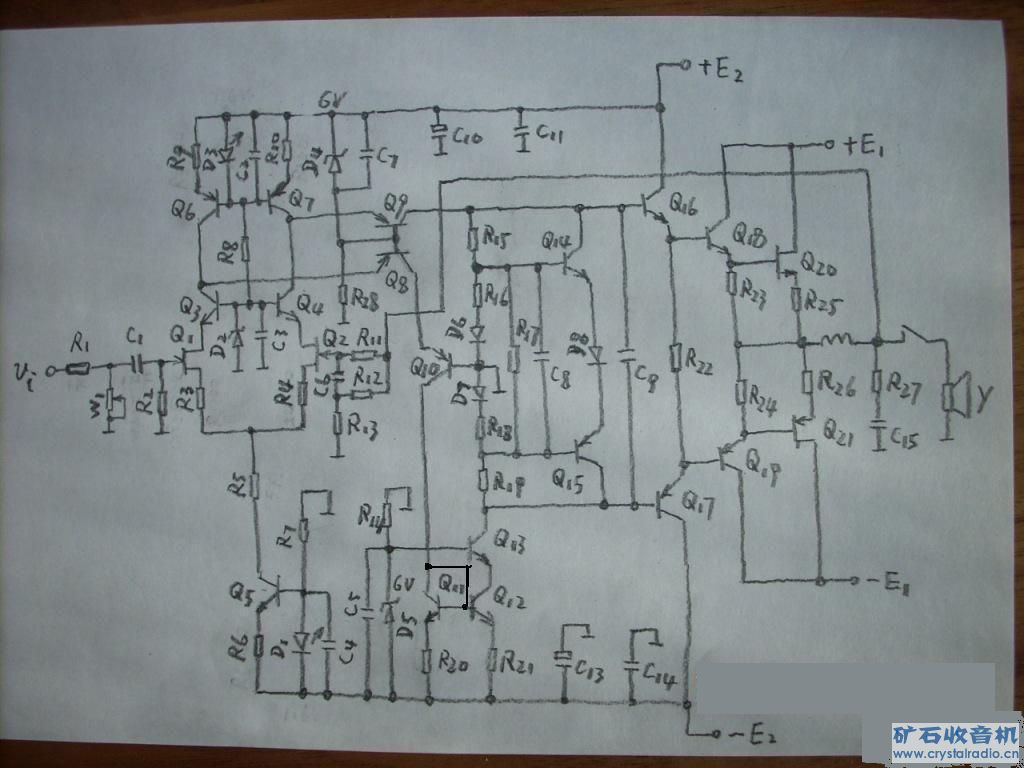 +E2
6V
C10
C11
+E1
R9
D3
C2
R10
D4
C7
Q6
Q7
Q9
Q16
Q18
Q20
R8
R15
Q14
Q8
R23
R25
R28
R16
Q3
Q4
D2
C3
Q2
R11
D6
R17
C8
D8
C9
R22
R1
C1
Q1
Vi
W1
R2
R3
R14
C6
R12
R13
Q10
D7
R18
R24
R26
R27
Y
Q21
C15
R5
R19
Q15
Q17
Q19
R7
R14
Q13
-E1
Q5
6V
Q11
Q12
R6
D1
C4
C5
D5
R20
R21
C13
C14
-E2
矿石收音机
www.crystalradio.cn